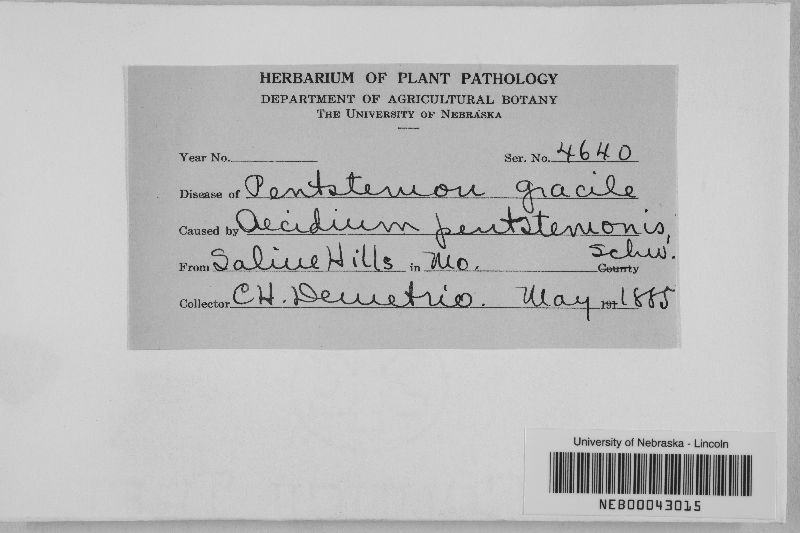 HERBARIUM OF PLANT PATHOLOGY
DEPARTMENT OF AGRICULTURAL BOTANY
THE UNIVERSITY OF NEBRASKA
Year No. Ser. No. 4640
Disease of Pentstemon gracile
Caused by Aecidium pentstemonis,
Schw.
From Saline Hills in Mo. County
Collector C H. Demetrio. May 191 1885
University of Nebraska - Lincoln
NEB00043015